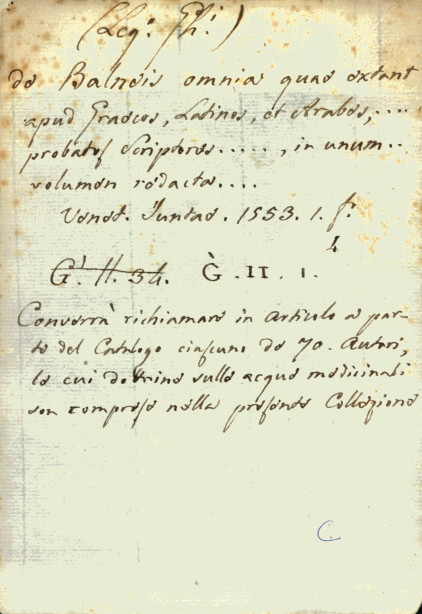 (Leg: Fil:i)
de Balneis omnia quae extant
apud Graecos, Latinos, et Arabos, ....
probatoſ Scriptores ....., in unum ..
volumen redacta ....
Venet. Juntas. 1553. 1. f.
4
G. H. 34. G. II. 1.
Converrà richiamare in articolo a par-
te del Catalogo ciascuno de 70. Autori,
le cui dottrine sulle acque medicinali
son compreſe nella preſente Collezione
C